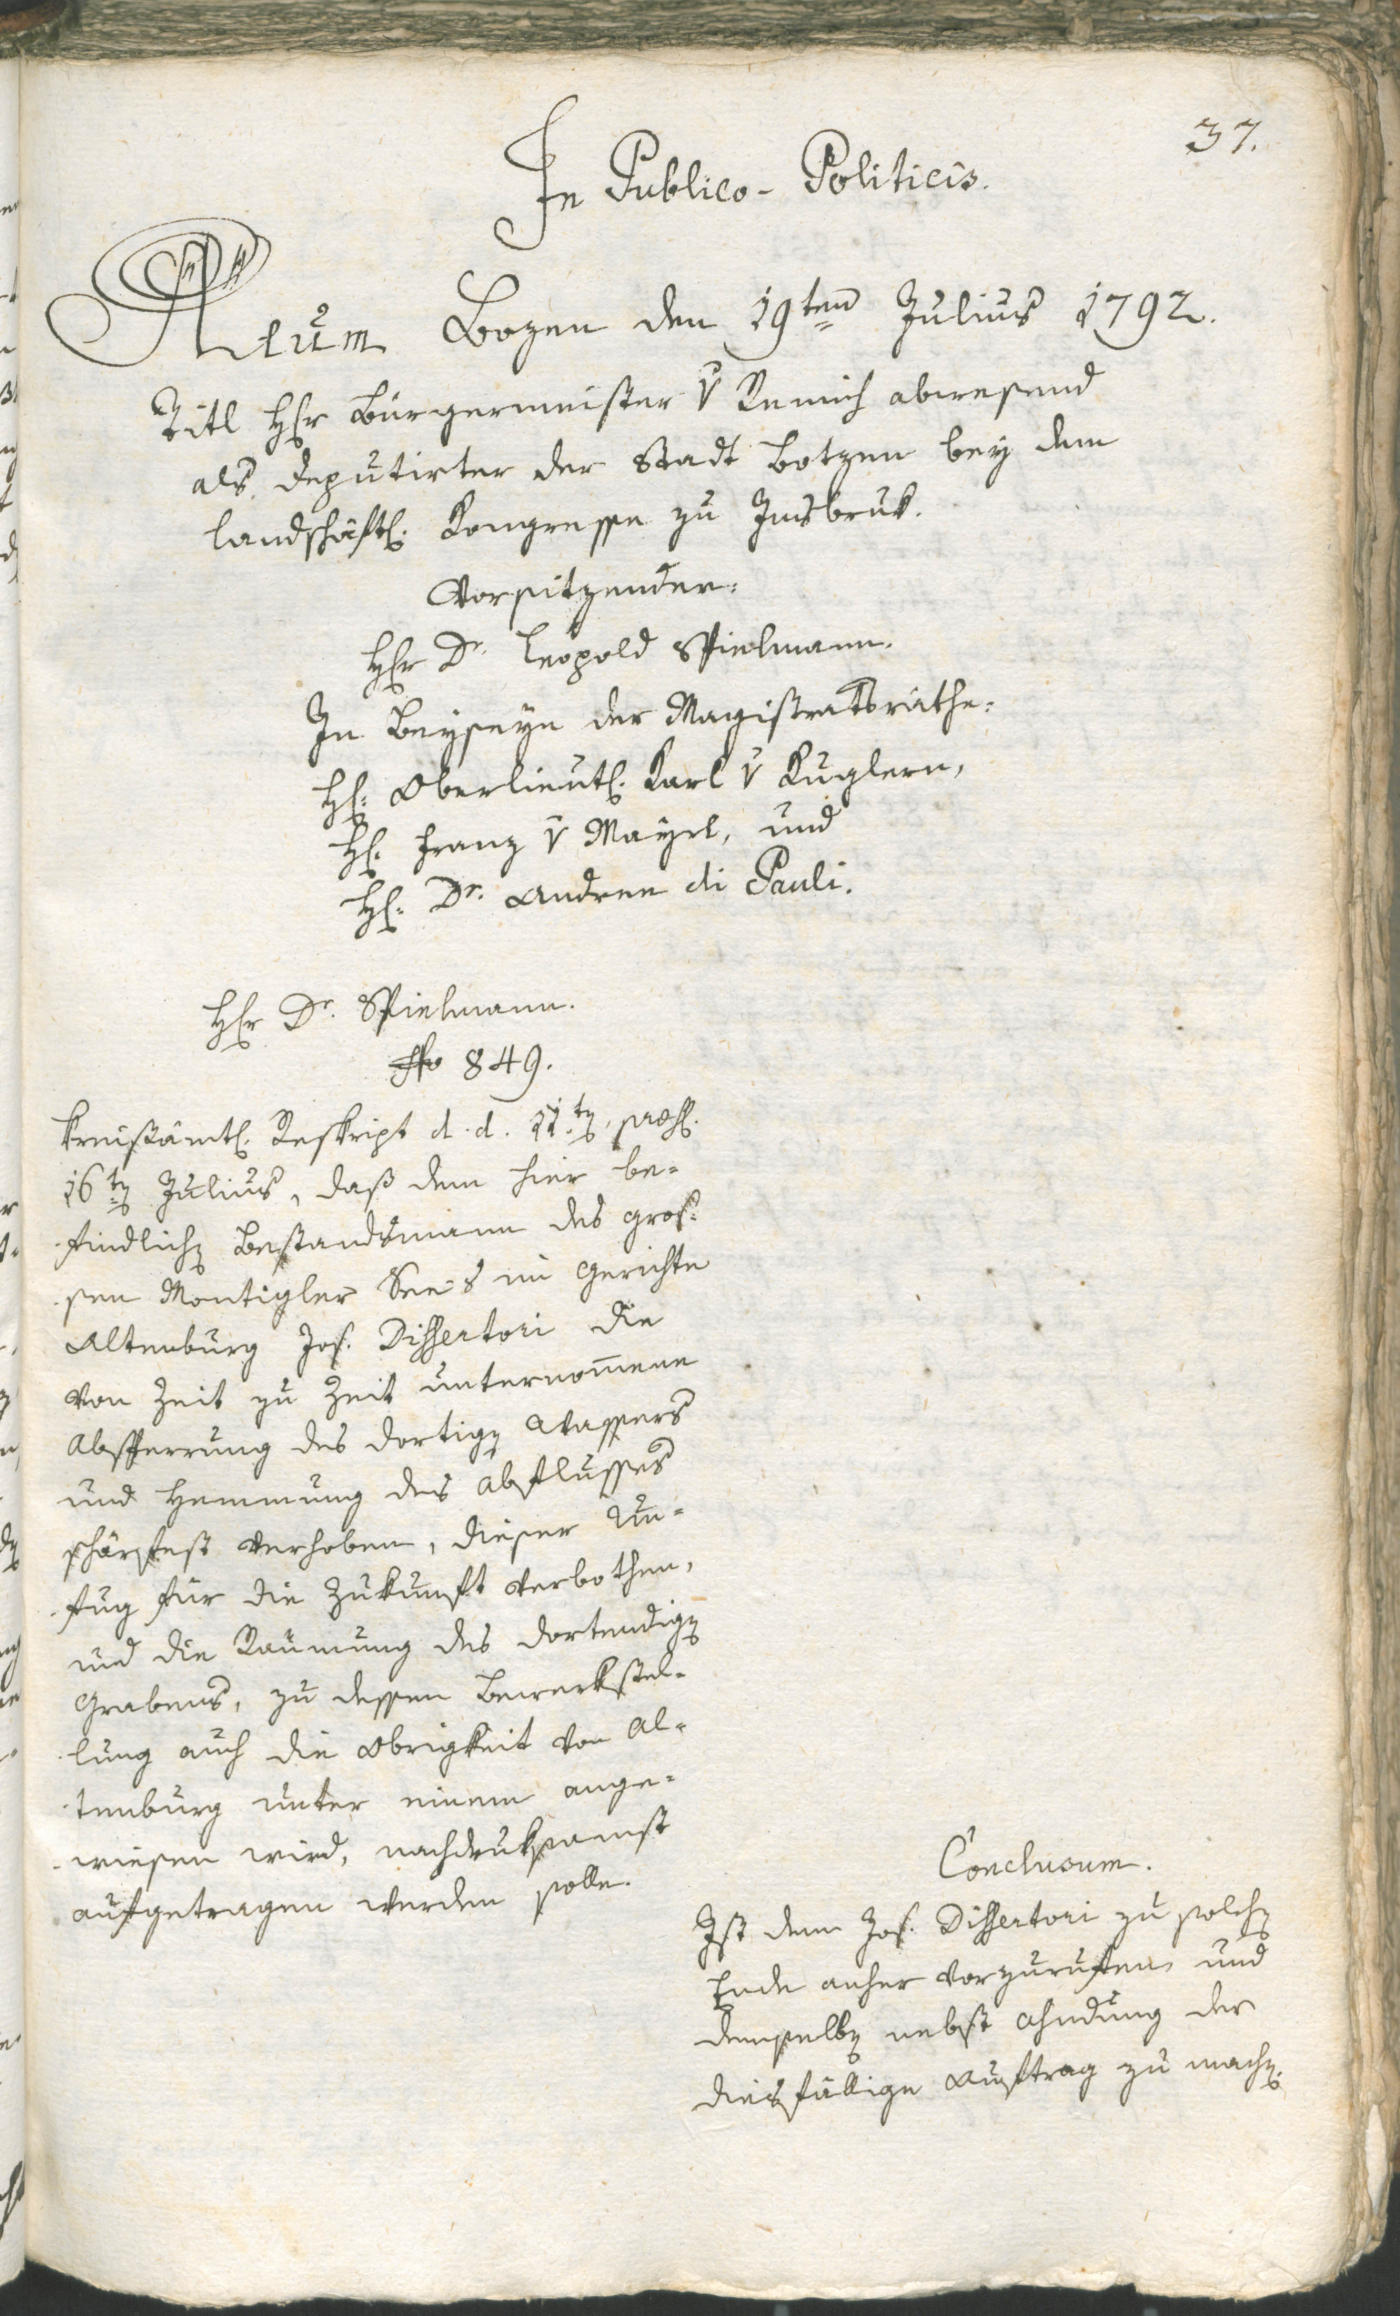 37.
In Publico-Politicis.
Actum Bozen den 19ten Julius 1792.
Titl Herr Bürgermeister v Remich abwesend
als Deputirter der Stadt Botzen bey dem
landschäftl. Kongresse zu Innsbruk.
Vorsitzender:
Herr Dr. Leopold Spielmann.
In Beyseyn der Magistratsräthe:
H: Oberlieut. Karl v Kuglern,
H: Franz v Mayrl, und
H: Dr. Andree di Pauli.
Herr Dr. Spielmann.
No 849.
Kreisämtl. Reskript d. d. 11.ten, präs.
16ten Julius, daß dem hier be-
findlichen Bestandsmann des gros-
sen Montigler See's im Gerichte
Altenburg Jos. Dissertori die
von Zeit zu Zeit unternom̄ene
Absperrung des dortigen Wassers
und Hemmung des Abflusses
schärfest verhoben, dieser Un-
fug für die Zukunft verbothen,
und die Räumung des dortendigen
Grabens, zu dessen Bewerkstel-
lung auch die Obrigkeit von Al-
tenburg unter einem ange-
wiesen wird, nachdruksamst
aufgetragen werden solle.
Conclusum.
Ist dem Jos. Dissertori zu solchen
Ende anher vorzurufen und
demselben nebst Ahndung der
diesfällige Auftrag zu machen.